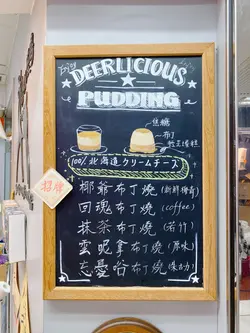 Enjoy
DEERLICIOUS
PUDDING
焦糖
布丁
乾玉蛋糕
100% 北海道クリームチーズ
招牌
椰爺布丁燒 (新鮮椰香)
回魂布丁燒 (coffee)
抹茶布丁燒 (若竹)
雲昵拿布丁燒 (原味)
忘憂哈布丁燒